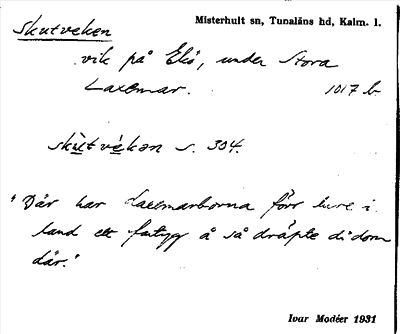 Skutveken
Misterhult sn, Tunaläns hd, Kalm. l.
vik på Ekö, under Stora
Laxemar. 1017 b
skùtvékən s. 304.
"Där har Laxemarborna förr i
land ett fartyg å så dräpte di dom
där."
Ivar Modéer 1931